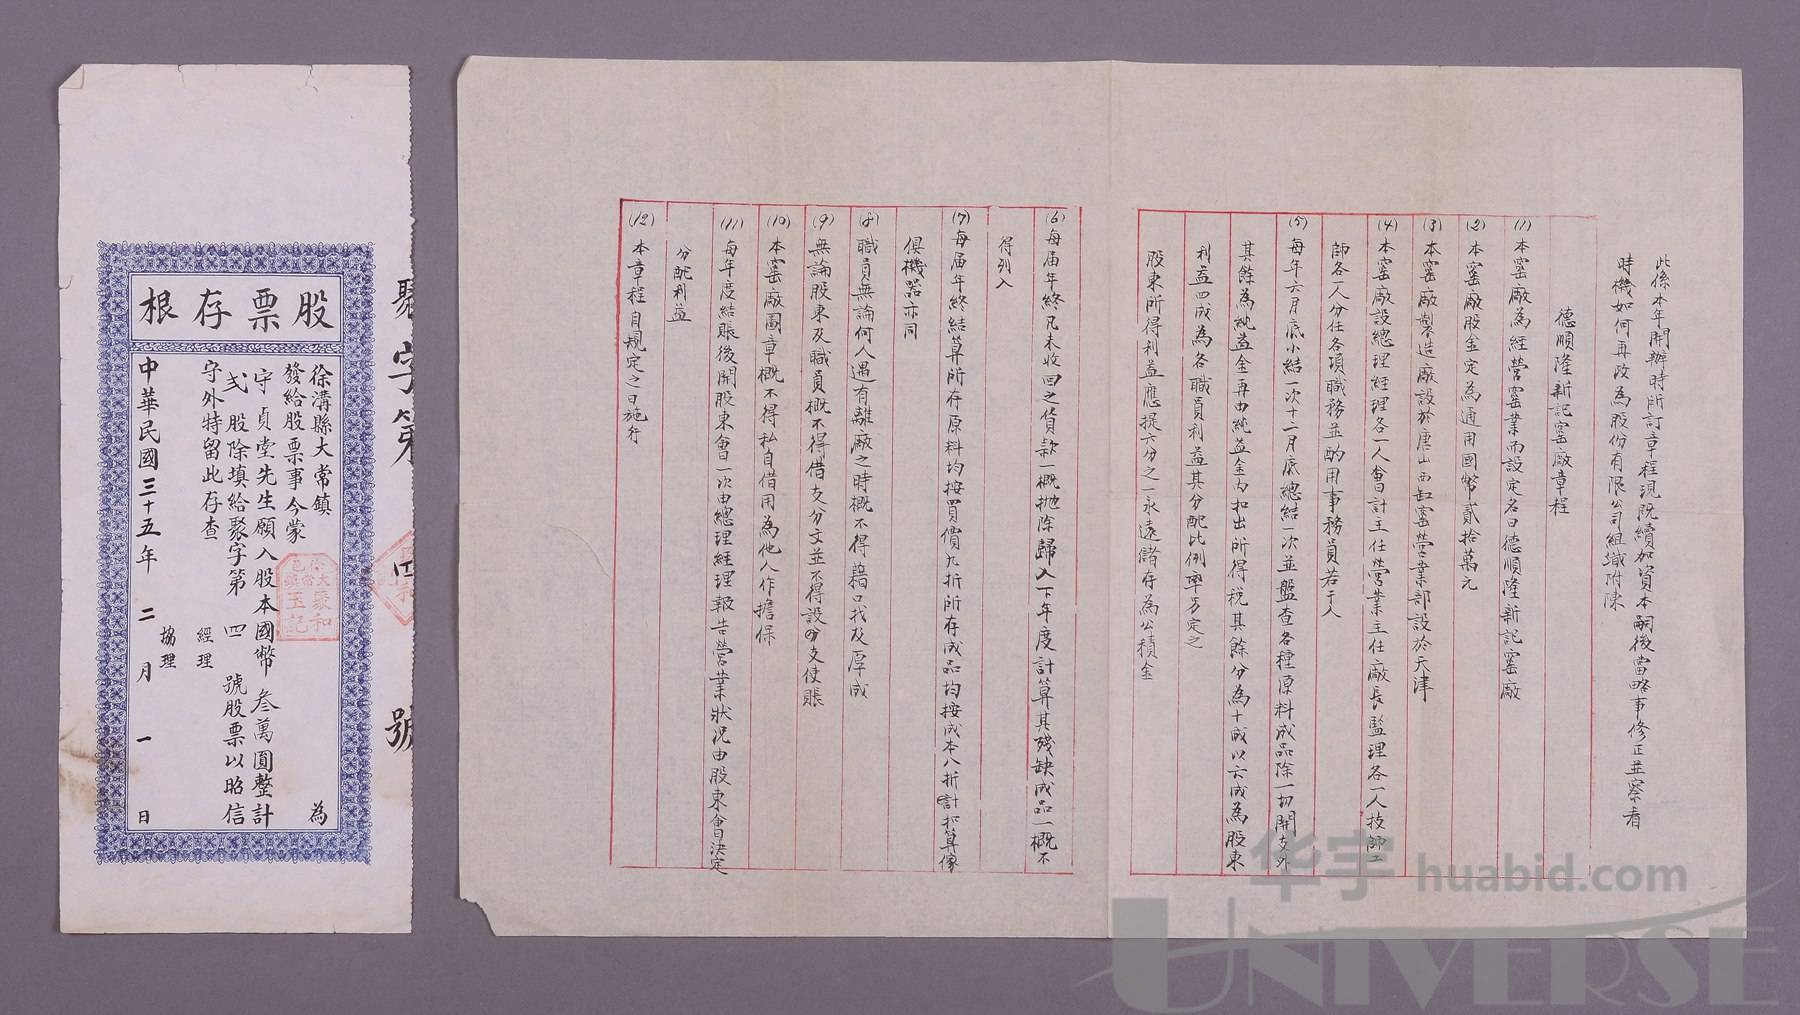 股票存根
徐溝縣大常鎮 為
發給股票事今蒙
守貞堂先生願入股本國幣叁萬圓整計
弍股除填給聚字第四號股票以昭信
守外特留此存查
經理
協理
中華民國三十五年二月一日
聚字第四號
此係本年開辦時所訂章程現既續加資本嗣後當略事修正並察看
時機如何再改為股份有限公司組織附陳
德順隆新記窰廠章程
(1)本窰廠為經營窰業而設定名曰德順隆新記窰廠
(2)本窰廠股金定為通用國幣貳拾萬元
(3)本窰廠製造廠設於唐山西缸窰營業部設於天津
(4)本窰廠設總理經理各一人會計主任營業主任廠長監理各一人技師工
師各一人分任各項職務並酌用事務員若干人
(5)每年六月底小結一次十二月底總結一次並盤查各種原料成品除一切開支外
其餘為純益金再由純益金內扣出所得稅其餘分為十成以六成為股東
利益四成為各職員利益其分配比例率另定之
股東所得利益應提六分之一永遠儲存為公積金
(6)每届年終凡未收回之貨款一概拋除歸入下年度計算其殘缺成品一概不
得列入
(7)每届年終結算所存原料均按買價九折所存成品均按成本八折計扣算傢
俱機器亦同
(8)職員無論何人遇有離廠之時概不得藉口找及厚成
(9)無論股東及職員概不得借支分文並不得設支使賬
(10)本窰廠圖章概不得私自借用為他人作擔保
(11)每年度結賬後開股東會一次由總理經理報告營業狀況由股東會決定
分配利益
(12)本章程自規定之日施行
华宇 huabid.com
UNIVERSE